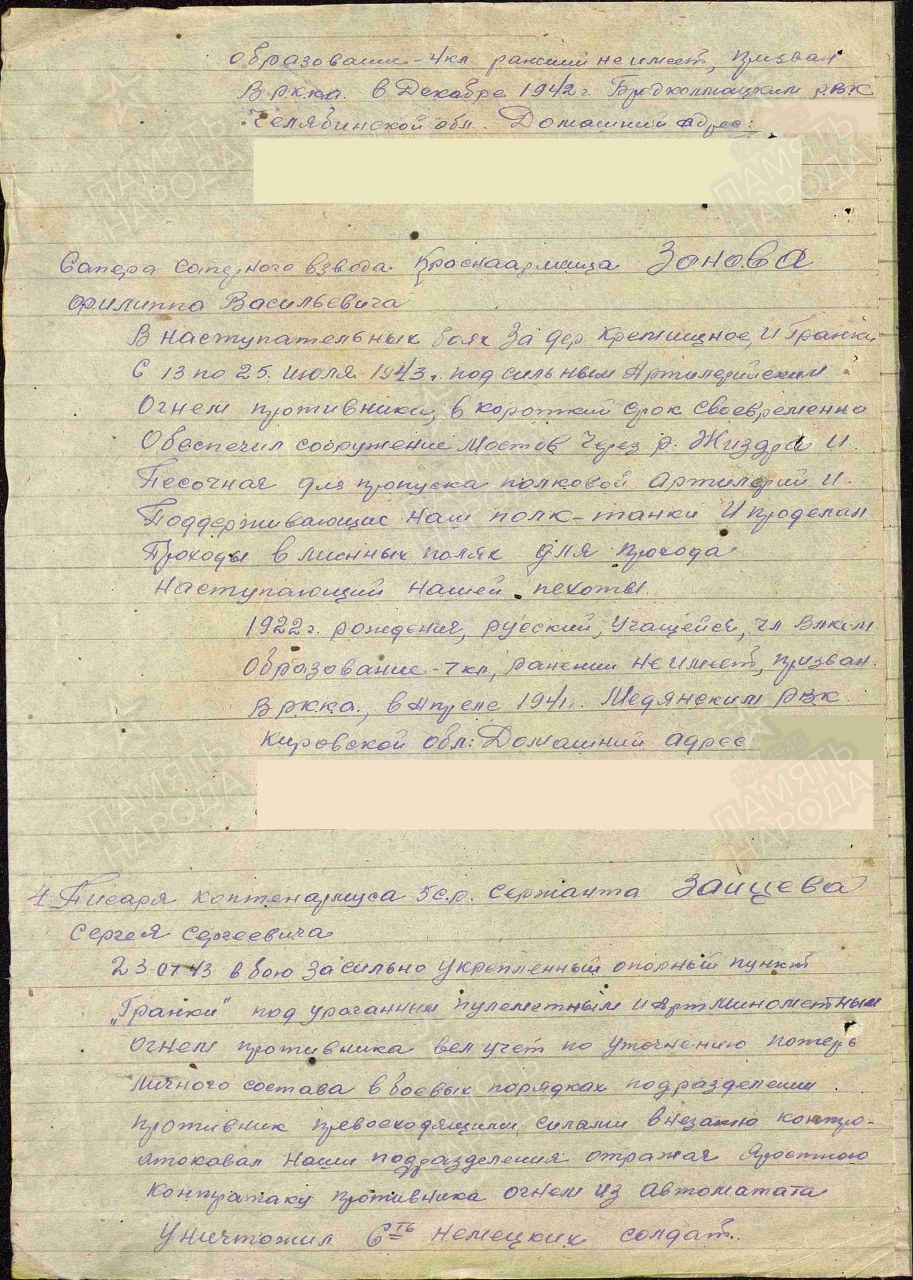 образование - 4кл ранений не имеет, призван
В рккa. в Декабре 1942 г. Бродколмацким РВК
Челябинской обл. Домашний Адрес:
Сапера саперного взвода Красноармейца Зонова
Филиппа Васильевича
В наступательных боях За дер. Кретищное, и Гранки
С 13 по 25. июля 1943г. под сильным Артилерийским
Огнем противника, в короткий срок своевременно
Обеспечил сооружение Мостов Через р. Жиздра и
Песочная для пропуска полковой артилерий и
Поддерживающие наш полк-танки и проделал
Проходы в минных полях для прохода
наступающий нашей пехоты.
1922г. рождения, русский, Учащейся, чл Влксм
Образование - 7кл, ранении не имеет, призван.
В ркка, в Апреле 1941г. Медянским РВК
Кировской обл: Домашний адрес
4 Писаря коптенармуса 5с.р. Сержанта Зайцева
Сергея Сергеевича
23 07 43 в бою За сильно укрепленный опорный пункт
"Гранки" под ураганным пулеметным и Артминометным
Огнем противника вел учет по Уточнению потерь
личного состава в боевых порядках подразделении.
противник превосходящими силами внезапно контро-
атоковал наши подразделения отражая яростною
контратаку противника огнем из автоматата
Уничтожил 6ть немецких солдат.
ПАМЯТЬ
НАРОДА
ПАМЯТЬ
НАРОДА
ПАМЯТЬ
НАРОДА
ПАМЯТЬ
НАРОДА